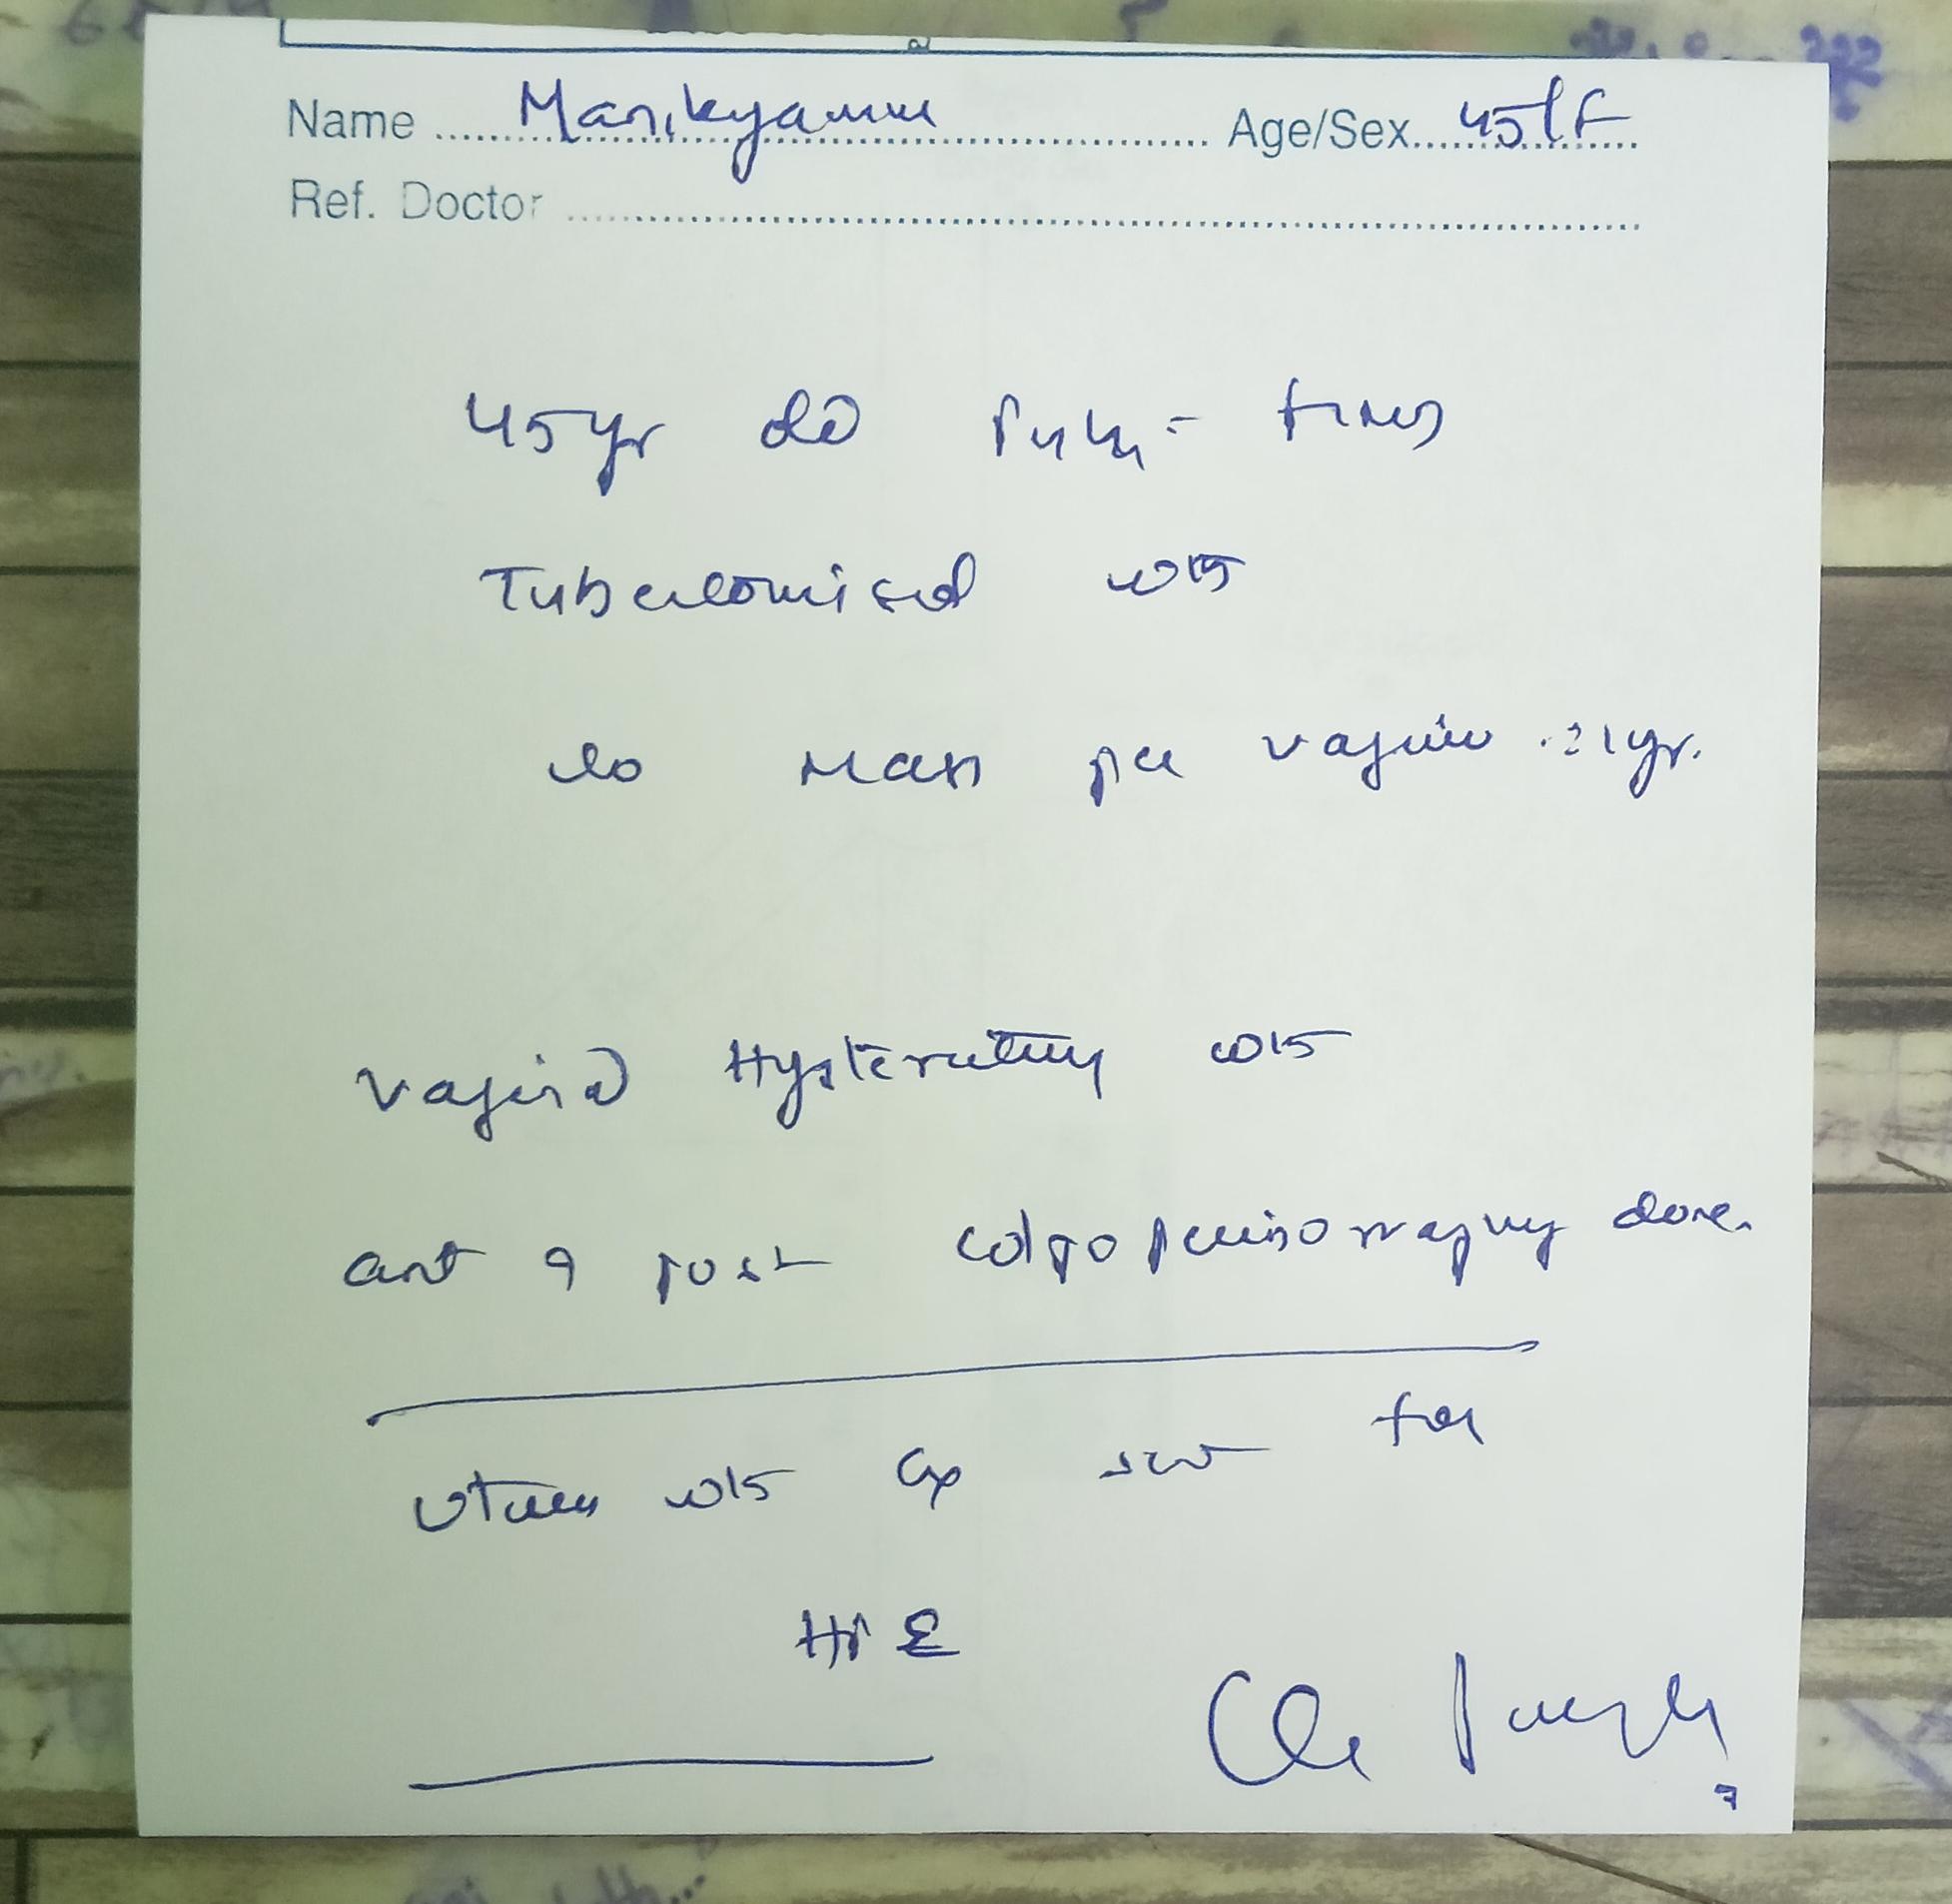 Name Manikyamm Age/Sex 45/F
Ref. Doctor
45yr old
Tubectomised with
c/o Mass per vagina 1yr.
Vaginal Hysterectomy with
ant & post colpoperineorraphy done.
Uterus with Cx sent for
HPE